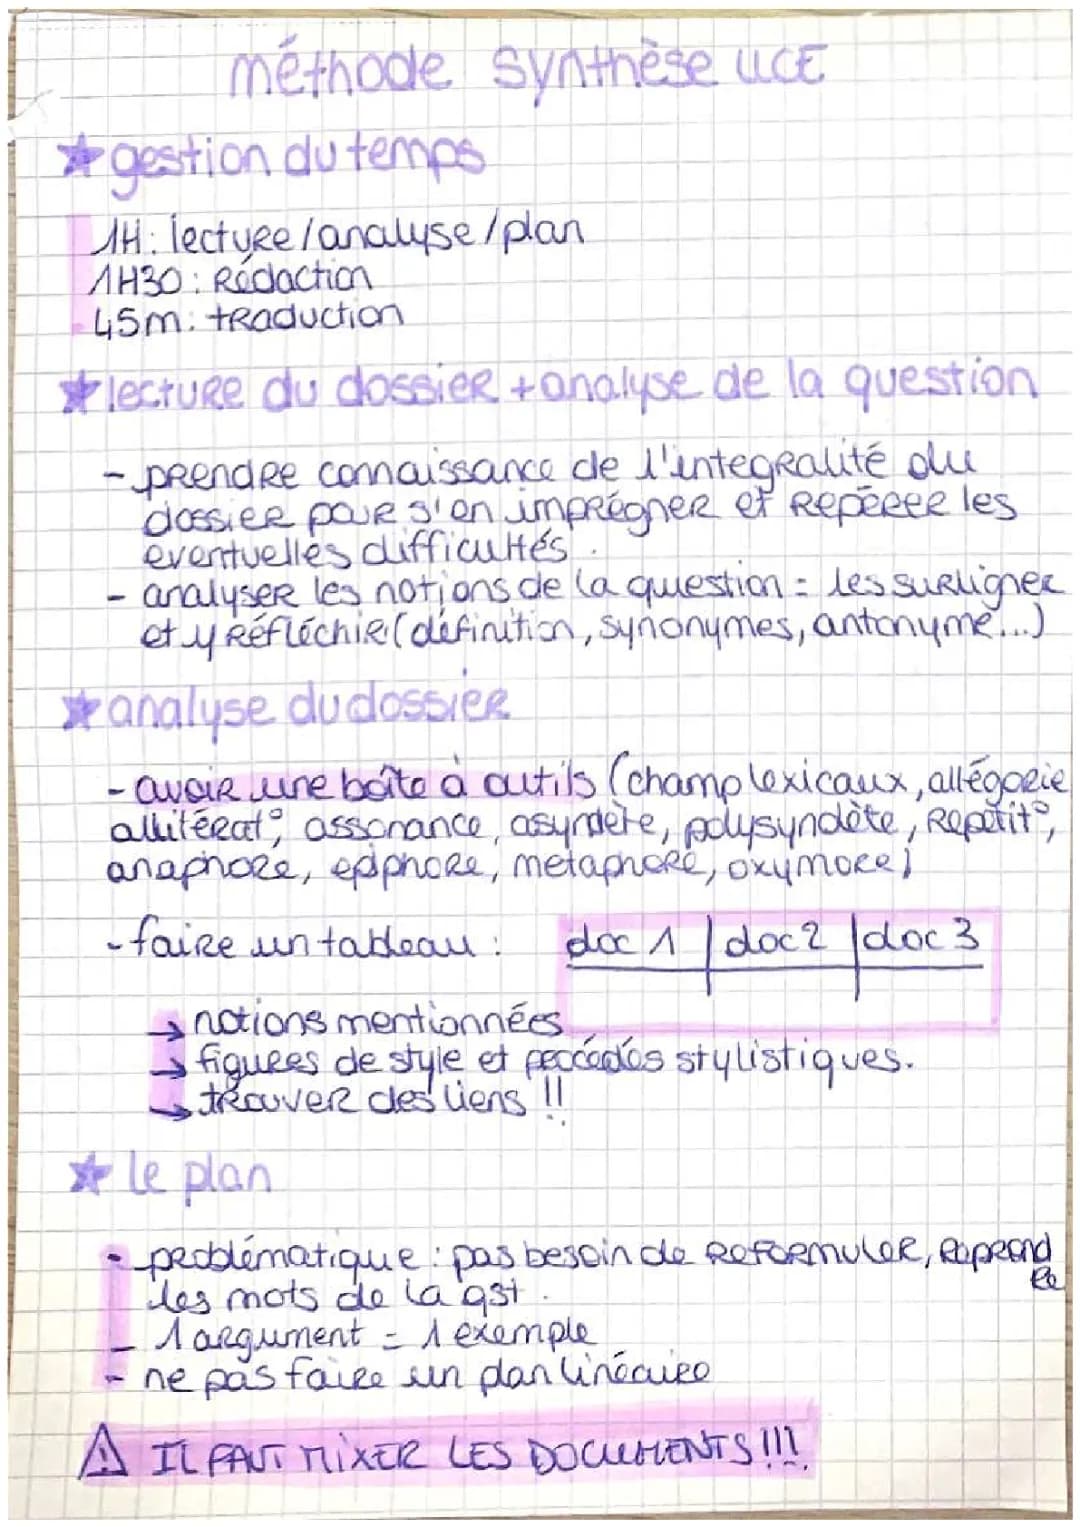 méthode synthèse LLCE
★ gestion du temps
1H: lecture/analyse/plan
1H30: Rédaction
45m: traduction
★ lecture du dossier + analyse de la question
- prendre connaissance de l'integralité du
dossier pour s'en imprégner et repérer les
eventuelles difficultés.
- analyser les notions de la question = les surligner
et y réfléchir (définition, synonymes, antonyme...)
★ analyse du dossier
- avoir une boîte à outils (champ lexicaux, allégorie
allitérat°, assonance, asyndète, polysyndète, Répétit°,
anaphore, epiphore, métaphore, oxymore)
- faire un tableau : doc 1 | doc 2 | doc 3
→ notions mentionnées
→ figures de style et procédés stylistiques.
→ trouver des liens !!
★ le plan
- problématique : pas besoin de reformuler, Reprend
re
les mots de la qst.
- 1 argument = 1 exemple
- ne pas faire un plan linéaire
⚠ IL FAUT MIXER LES DOCUMENTS !!!